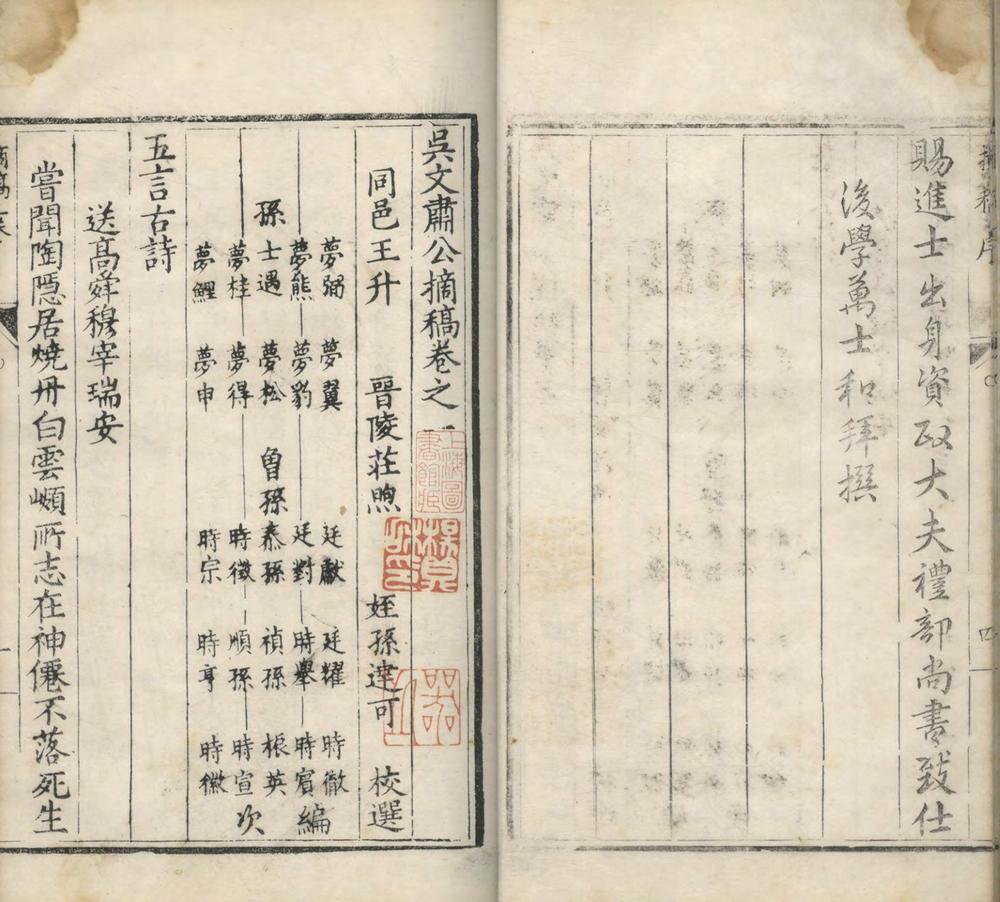 賜進士出身資政大夫禮部尚書致仕
後學萬士和拜撰
四
吳文肅公摘稿卷之一
同邑王升 晉陵莊煦 姪孫達可 校選
夢弼 夢翼 廷獻 廷耀 時徹
夢熊 夢豹 廷對 時舉 時賓 編
孫 士遇 夢松 曾孫 泰孫 禎孫 根英
夢桂 夢得 時徵 順孫 時宣 次
夢鯉 夢申 時宗 時亨 時徽
五言古詩
送高舜穆宰瑞安
嘗聞陶隱居燒丹白雲嶺所志在神僊不落死生
上海圖書館藏